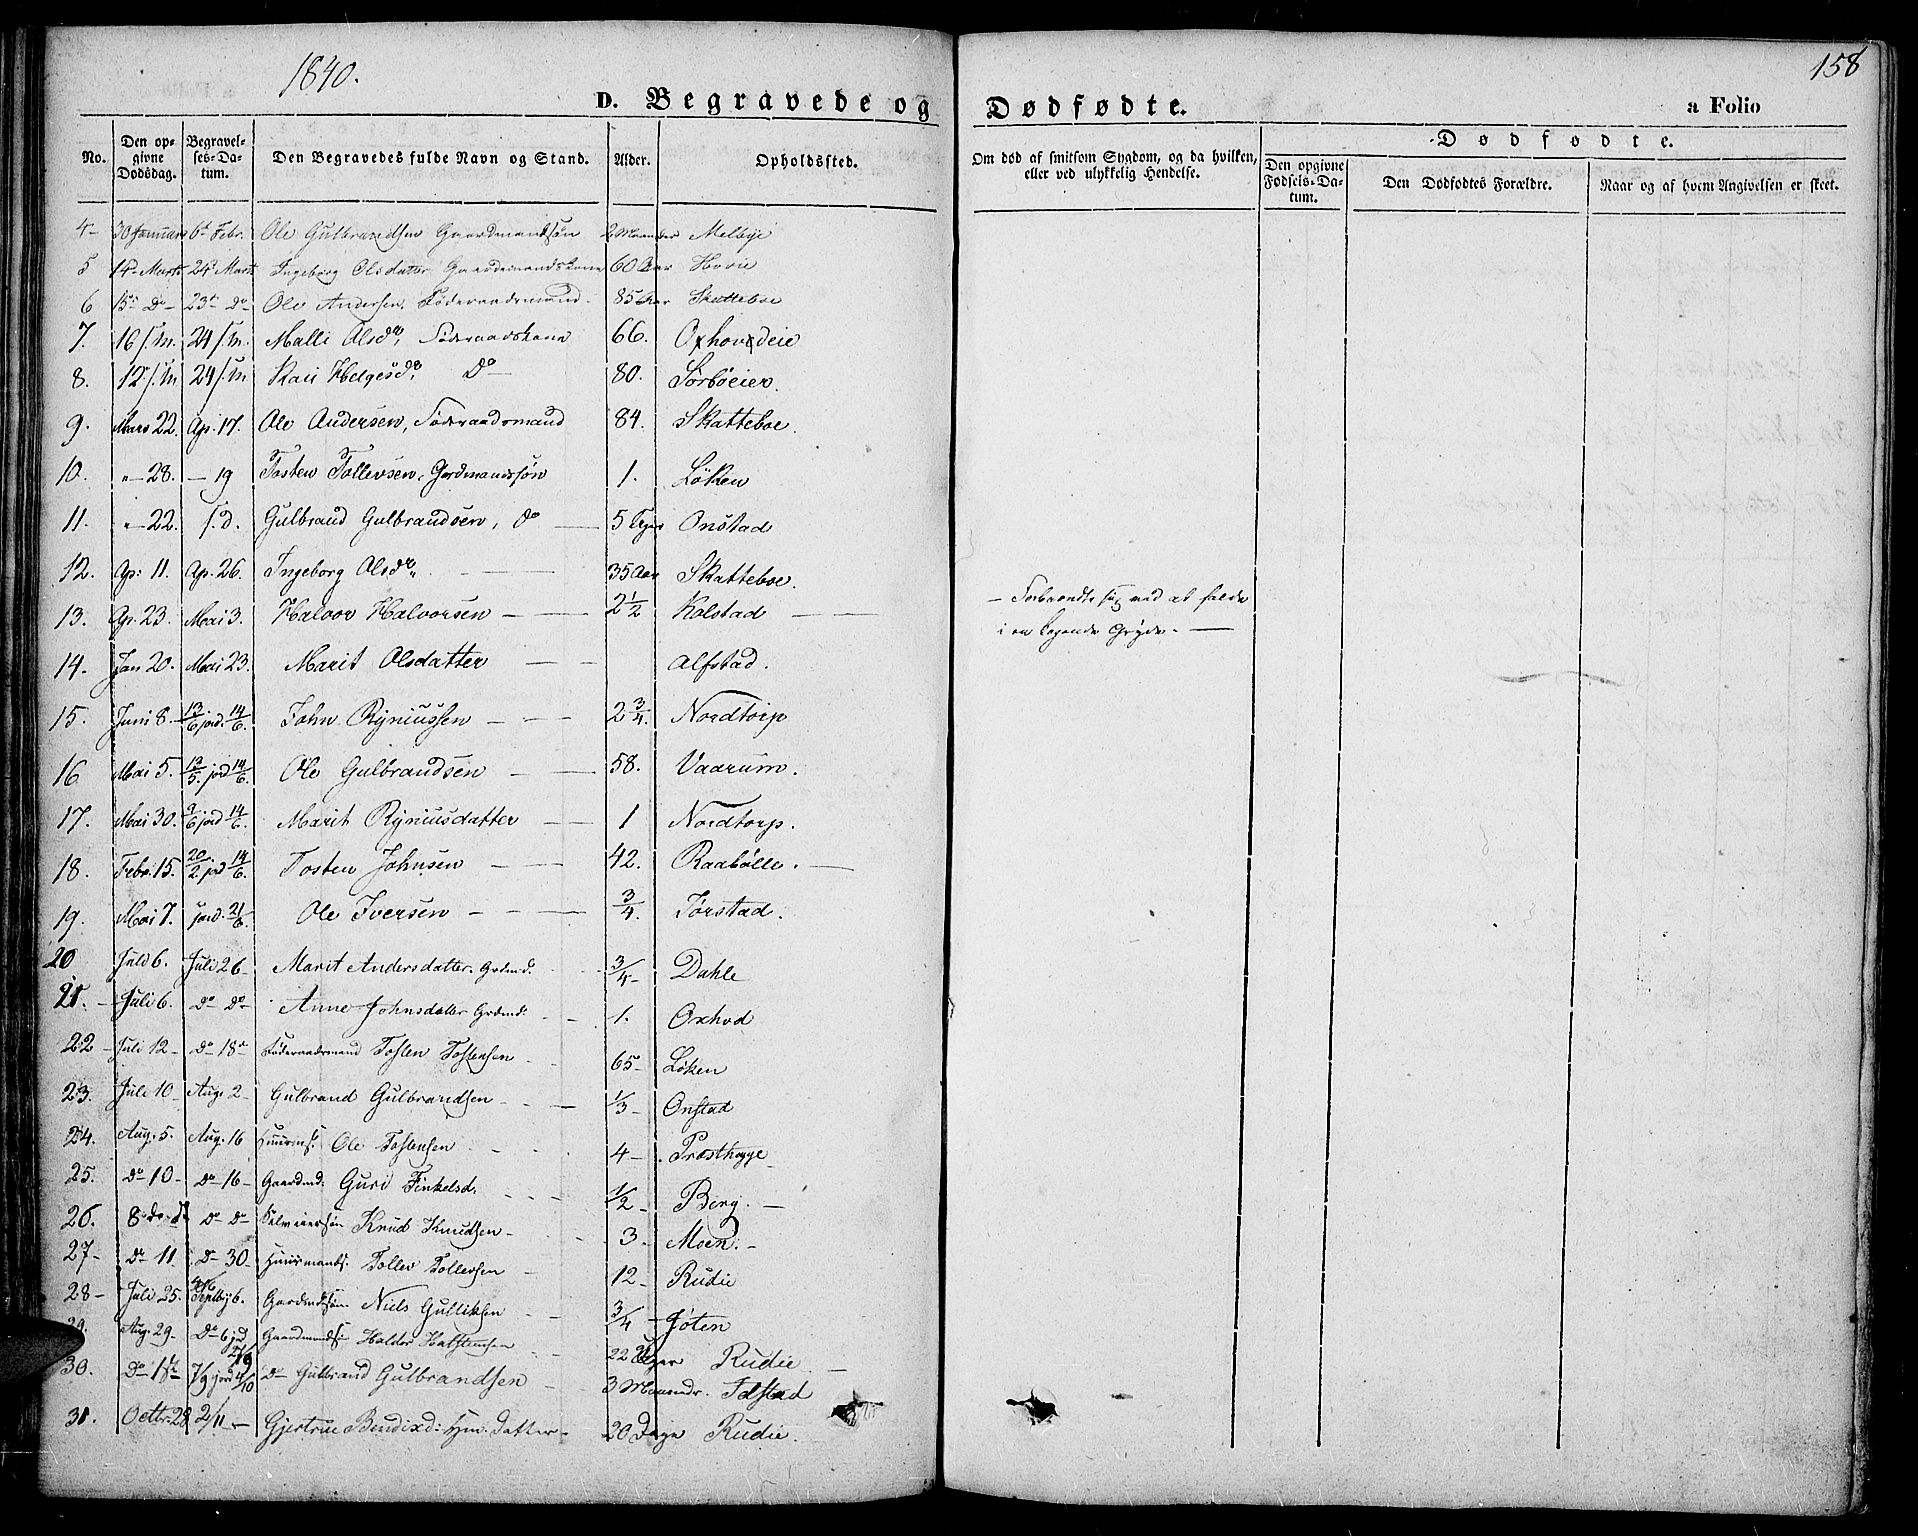 1840.
158
D. Begravede og Dødfødte. a Folio
No. Den opgivne Dødsdag. Begravelses-Datum. Den Begravedes fulde Navn og Stand. Alder. Opholdssted. Om død af smitsom Sygdom, og da hvilken, eller ved ulykkelig Hendelse. Dødfødte. Den opgivne Fødsels-Datum. Den Dødfødtes Forældre. Naar og af hvem Angivelsen er skeet.
4- 30 Januar 6t Febr. Ole Gulbrandsen Gaardmandssøn 2 Maaneder Melbye
5 14de Marts 24de Marts Ingeborg Olsdatter Gaardmandskone 60 Aar Hovie
6 15de Do- 23de Do- Ole Andersen, Føderaadsmand. 85 Aar Skatteboe
7. 16/s.m. 24/s.m. Malli Olsdr, Føderaadskone 66. Oxhovdeie
8. 12/s.m 24/s.m Kari Helgesdr, Do 80. Sørbøeier.
9. Mars 22. Ap. 17. Ole Andersen, Føderaadsmand 84. Skatteboe.
10. "-28. -19 Tosten Tollevsen, Gordmandssøn 1. Löken
11. "-22. s.d. Gulbrand Gulbrandsen, do 5 Uger Onstad
12. Ap: 11. Ap. 26. Ingeborg Olsdr, 35 Aar Skatteboe.
13. Ap. 23. Mai 3. Halvor Halvorsen 2 1/2 Kolstad - Forbrændte sig ved at falde
i en kogende Gryde.
14. Jan 20. Mai 23. Marit Olsdatter Alfstad.
15. Juni 8. 13/6 jord. 14/6. John Ryniussen 2 3/4. Nordtorp
16 Mai 5. 13/5. jord 14/6. Ole Gulbrandsen 58. Vaarum.
17. Mai 30. 9/6 jord 14/6. Marit Ryniusdatter 1 Nordtorp.
18. Febr. 15. 20/2. jord 14/6. Tosten Johnsen 42. Raabölle.
19. Mai 7. jord. 21/6. Ole Iversen 3/4. Törstad.
20 Juli 6. Juli 26 Marit Andersdatter. Grdmd. 3/4- Dahle
21.- Juli 6. Do Do Anne Johnsdatter Grdmd. 1. Oxhod
22- Juli 12- Do 18de Föderaadsmand Tosten Tostensen 65- Löken
23. Juli 10 Aug. 2- Gulbrand Gulbrandsen 1/3- Onstad
24. Aug. 5. Aug. 16 Huusms: Ole Tostensen 4- Præsthegge
25. Do 10 Do 16- Gaardmd: Guri Finkelsd. 1/2- Berg.
26. 8 de do Do Do Knud Knudsen- 3- Moen.-
27- Do 11 Do-30 Huusmands: Tollev Tollevsen 12- Rudie
28- Juli 25. Septbr 6. Gardmdssøn Niels Gulliksen 3/4 Jöten
29. Aug. 29- Do 6 jrd 27/9 Gaardmandss: Halder Halstensen 22 Uger Rudie
30. Do 18de 7/9 jord 4/10 Do Gulbrand Gulbrandsen 3 Maaneder. Idstad
31. Octbr. 28 2/11- Gjertrue Bendixd: Hm: datter- 20 Dage Rudie.